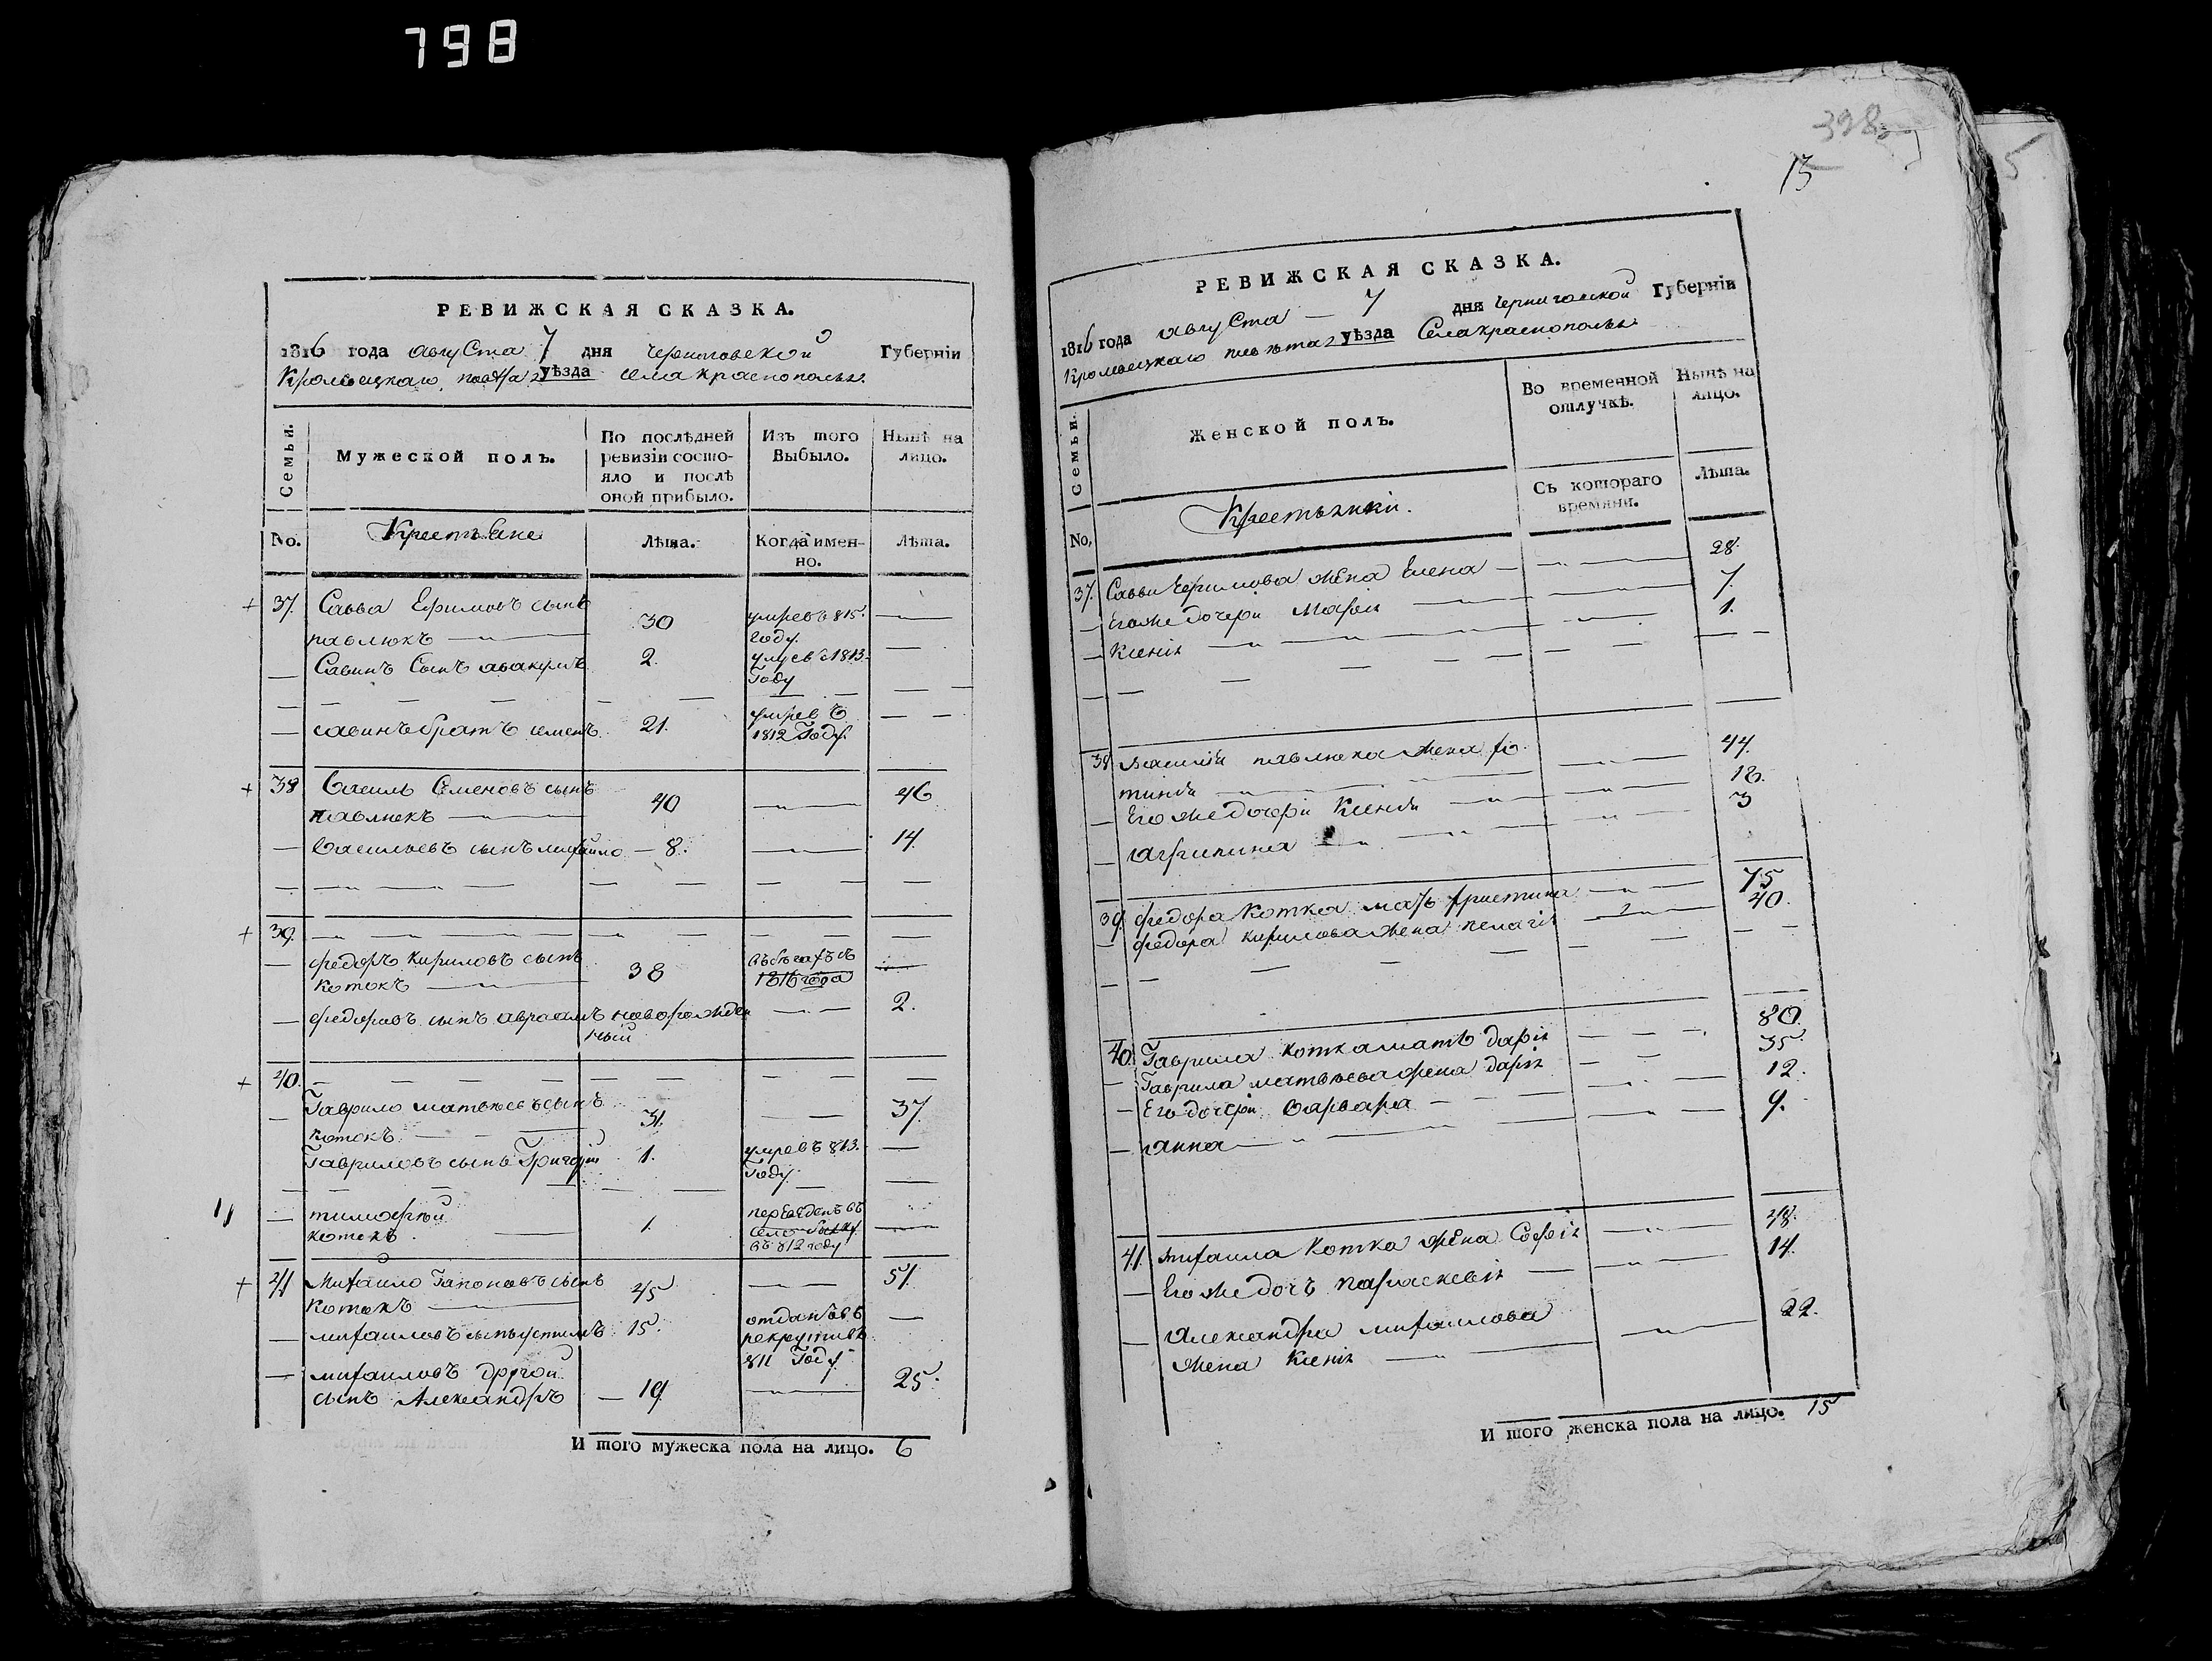 798
РЕВИЖСКАЯ СКАЗКА.
1816 года августа 7 дня черниговской Губерніи
Кролевецкаго повѣта уѣзда села краснополья
Семьи.
Мужеской полъ.
По послѣдней ревизіи состояло и послѣ оной прибыло.
Изъ того Выбыло.
Нынѣ на лицо.
No.
Крестьяне
Лѣта.
Когда имен-
но.
Лѣта.
37. Савва Ефимовъ сынъ
павлюкъ 30 умре въ 815. году.
Савинъ Сынъ авакумъ 2. умре в 1813 Году
савинъ братъ семенъ 21. умре въ 1812 Году.
38 Василь Семеновъ сынъ
павлюкъ 40 46
Васильевъ сынъ михайло 8. 14.
39.
федоръ кириловъ сынъ
котокъ 38 въ бегахъ съ 1816 года
федоровъ сынъ авраамъ новорожден
ный 2.
40.
Гаврило матвѣевъ сынъ
котокъ 31. 37.
Гавриловъ сынъ Григорій 1. умре въ 813. Году.
тимофѣй
котокъ 1. переведенъ въ село въ 812 году
41 Михайло Гапоновъ сынъ
котокъ 45 51.
михаиловъ сынъ устимъ 15. отданъ въ рекруты въ 811 Году
михаиловъ другой
сынъ Александръ 19 25.
И того мужеска пола на лицо. 6
398
13
РЕВИЖСКАЯ СКАЗКА.
1816 года августа 7 дня черниговской Губерніи
Кролевецкаго повѣта уѣзда Села краснополья
Семьи.
Женской полъ.
Во временной отлучкѣ.
Нынѣ на лицо.
Съ котораго времяни.
Лѣта.
No.
Крестьянки.
37. Саввы Ефимова жена Елена 28.
Его же дочери Марія 7.
Ксенія 1.
38 Василія павлюка жена фо
тинія 44.
Его же дочери Ксенія 18.
Агрипина 3
39. федора Котка мать христина 75
федора кирилова жена пелагія 40.
40. Гаврила котка мать дарія 80.
Гаврила матвѣева жена дарія 35.
Его дочери варвара 12.
анна 9.
41. михаила котка жена Софія 48.
Его же дочь параскевія 14.
Александра михаилова
жена ксенія 22.
И того женска пола на лицо. 15